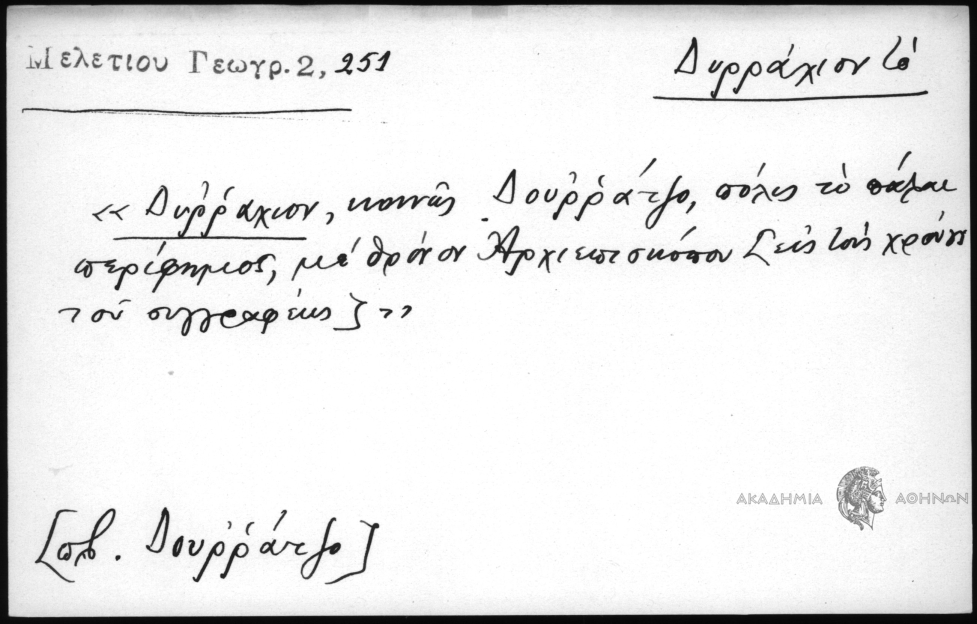 Μελετίου Γεωγρ. 2, 251
Δυρράχιον τό
«Δυῤῥάχιον, κοινῶς Δουῤῥάτζο, πόλις τὸ πάλαι
περίφημος, μὲ θρόνον Ἀρχιεπισκόπου [εἰς τοὺς χρόνους
τοῦ συγγραφέως]»
ΑΚΑΔΗΜΙΑ ΑΘΗΝΩΝ
[πβ. Δουῤῥάτζο]